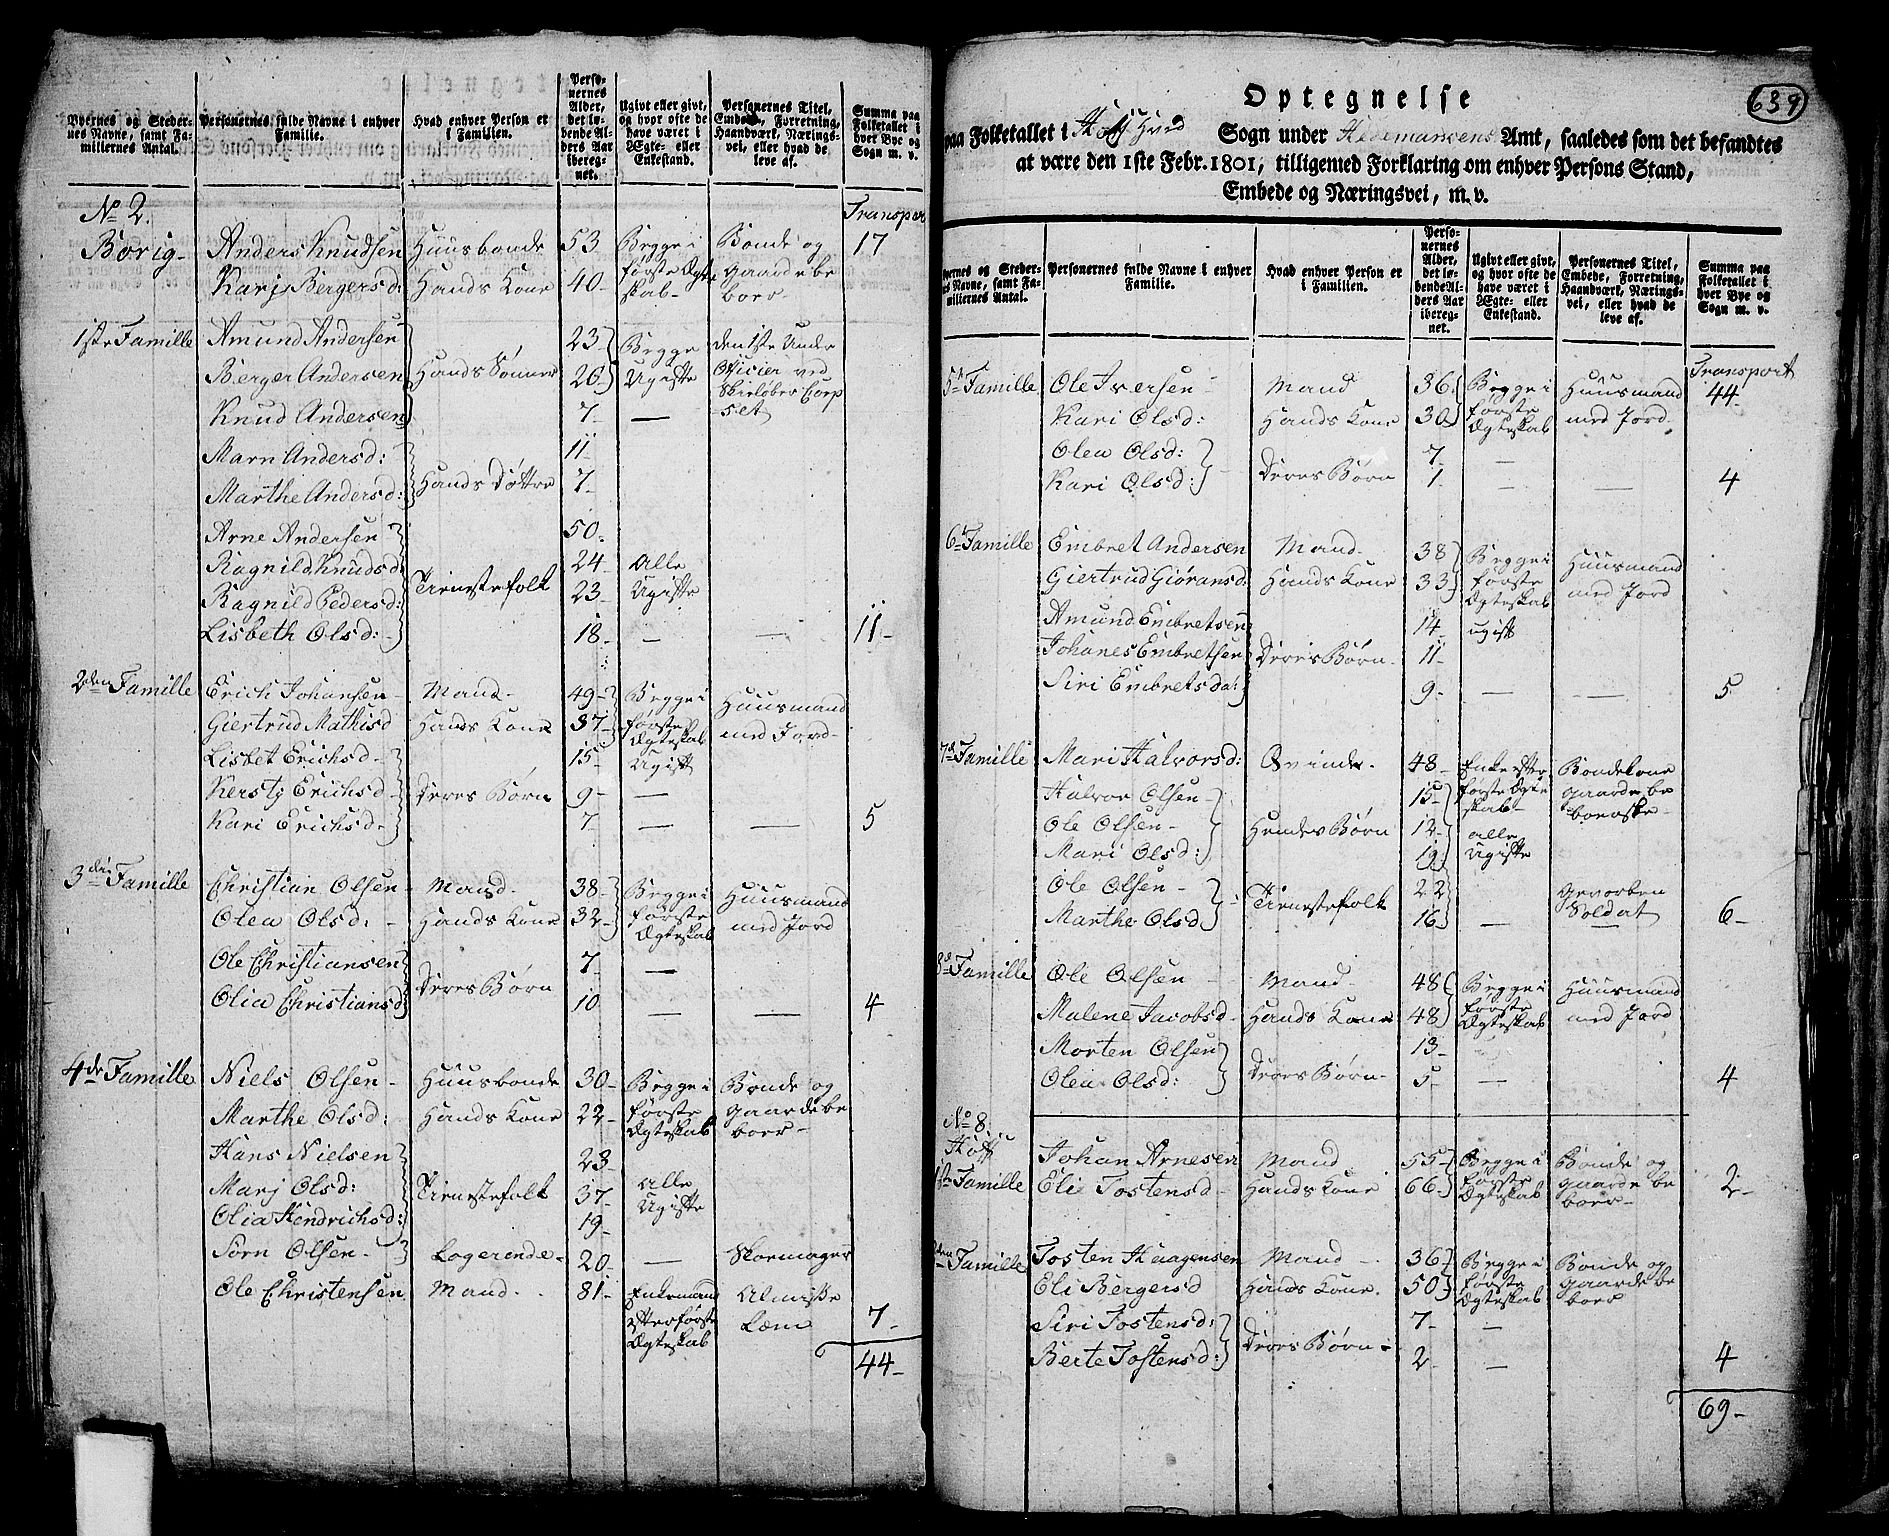 Byernes og Stedernes Navne, samt Familiernes Antal.
Personernes fulde Navne i enhver Familie.
Hvad enhver Person er i Familien.
Personernes Alder, det løbende Alders Aar iberegnet.
Ugivt eller givt, og hvor ofte de have været i Ægte- eller Enkestand.
Personernes Titel, Embede, Forretning, Haandværk, Næringsvei, eller hvad de leve af.
Summa paa Folketallet i hver Bye og Sogn m. v.
No 2. Transport
Borig- Anders Knudsen Huusbonde 53 Begge i Bonde og 17
Karj Bergersd: Hands Kone 40- første Ægte skab- gaardebe boer-
1ste Familie Amund Andersen 23- Begge den 1ste Under
Berger Andersen Hands Sønner 20- Ugifte Officier ved Skieløber Corp
Knud Andersen 7- — set
Marn Andersd: 11-
Marthe Andersd: Hands Døttre 7-
Arne Andersen 50-
Ragnild Knudsd: 24- Alle
Ragnild Pedersd: Tienestefolk 23- Ugifte
Lisbeth Olsd: 18- — — 11-
2den Familie Erich Johansen- Mand- 49- Begge i Huusmand
Giertrud Mathisd Hands Kone 37- første Ægteskab med Jord-
Lisbet Erichsd- 15- Ugift
Kersty Erichsd- Deres Børn 9- —
Kari Erichsd- 7- — — 5
3die Familie Christian Olsen- Mand- 38- Begge i Huusmand
Olea Olsd: - Hands Kone 32- første Ægteskab med Jord
Ole Christiansen 7- —
Olia Christiansd Deres Børn 10 — — 4
4de Familie Niels Olsen- Huusbonde 30- Begge i Bonde og
Marthe Olsd: Hands Kone 22- første Ægteskab gaardebe boer-
Hans Nielsen 23-
Marj Olsd: Tienestefolk 37- Alle
Olia Hendrichsd: 19- Ugifte
Sørn Olsen- Logerende- 20- — Skoemager
Ole Christensen Mand- 81- Enkemand Almisse
efter første Læm 7-
Ægteskab 44-
639
Optegnelse
paa Folketallet i Hoff Hvd Sogn under Hedemarkens Amt, saaledes som det befandtes
at være den 1ste Febr. 1801, tilligemed Forklaring om enhver Persons Stand,
Embede og Næringsvei, m. v.
Byernes og Stedernes Navne, samt Familiernes Antal.
Personernes fulde Navne i enhver Familie.
Hvad enhver Person er i Familien.
Personernes Alder, det løbende Alders Aar iberegnet.
Ugivt eller givt, og hvor ofte de have været i Ægte- eller Enkestand.
Personernes Titel, Embede, Forretning, Haandværk, Næringsvei, eller hvad de leve af.
Summa paa Folketallet i hver Bye og Sogn m. v.
Transport
5te Familie Ole Iversen - Mand 36 Begge i Huusmand 44-
Kari Olsd: Hands Kone 30 første Ægteskab med Jord-
Olea Olsd: 7- —
Kari Olsd: Deres Børn 1- — — 4
6te Familie Embret Andersen Mand- 38 Begge i Huusmand
Giertrud Giøransd: Hands Kone 33 første Ægteskab med Jord
Amund Embretsen 14- ugift
Johanes Embretsen Deres Børn- 11-
Siri Embretsd: 9- — — 5
7de Familie Mari Halvorsd: Qvinde- 48- Enke efter Bondekone
Halvor Olsen- 15- første Ægte skab- gaardebe
Ole Olsen- Hendes Børn 12- alle boerske-
Mari Olsd: 19- Ugifte
Ole Olsen - 22 Gevorben
Marthe Olsd: Tienestefolk 16- — Soldat — 6-
8de Familie Ole Olsen - Mand- 48 Begge i Huusmand
Malene Jacobsd- Hands Kone 48 første Ægteskab med Jord
Morten Olsen 13-
Olea Olsd: Deres Børn- 5- — 4
No 8.
Hoff Johan Arnesen Mand 55- Begge i Bonde og
1ste Familie Eli Tostensd- Hands Kone 66- første Ægteskab gaardebe boer- 2-
2den Familie Tosten Haagensen Mand -- 36 Begge i Bonde og
Eli Bergersd Hands Kone- 50 første Ægteskab gaardebe boer
Siri Tostensd: 7- —
Berte Tostensd: Deres Børn- 2- — 4
69-